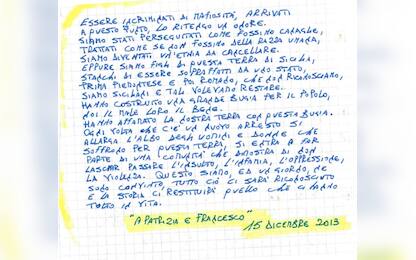 ESSERE INCRIMINATI DI MAFIOSITÀ, ARRIVATI
A QUESTO PUNTO, LO RITENGO UN ONORE.
SIAMO STATI PERSEGUITATI COME FOSSIMO CANAGLIE,
TRATTATI COME SE NON FOSSIMO DELLA RAZZA UMANA,
SIAMO DIVENTATI UN'ETNIA DA CANCELLARE.
EPPURE SIAMO FIGLI DI QUESTA TERRA DI SICILIA,
STANCHI DI ESSERE SOPRAFFATTI DA UNO STATO,
PRIMA PIEMONTESE POI ROMANO, CHE NON RICONOSCIAMO,
SIAMO SICILIANI E TALI VOLEVAMO RESTARE.
HANNO COSTRUITO UNA GRANDE BUGIA PER IL POPOLO,
NOI IL MALE LORO IL BENE.
HANNO AFFAMATO LA NOSTRA TERRA CON QUESTA BUGIA.
OGNI VOLTA CHE C'È UN NUOVO ARRESTO SI
ALLARGA L'ALBO DEGLI UOMINI E DONNE CHE
SOFFRONO PER QUESTA TERRA, SI ENTRA A FAR
PARTE DI UNA COMUNITÀ CHE DIMOSTRA DI NON
LASCIAR PASSARE L'INSULTO, L'INFAMIA, L'OPPRESSIONE,
LA VIOLENZA. QUESTO SIAMO, ED UN GIORNO, NE
SONO CONVINTO, TUTTO CIÒ CI SARÀ RICONOSCIUTO
E LA STORIA CI RESTITUIRÀ QUELLO CHE CI HANNO
TOLTO IN VITA.
"A PATRIZIA E FRANCESCO" 15 DICEMBRE 2013